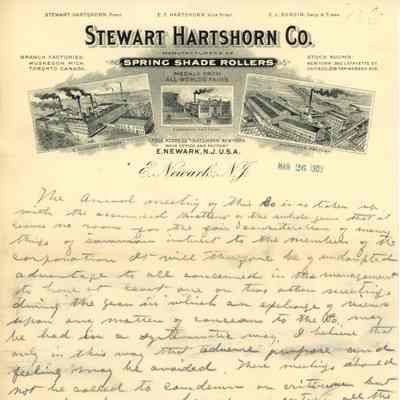 STEWART HARTSHORN, Prest.
E. F. HARTSHORN, Vice Prest.
STEWART HARTSHORN CO.
MANUFACTURERS OF
SPRING SHADE ROLLERS
MEDALS FROM
ALL WORLDS FAIRS
BRANCH FACTORIES:
MUSKEGON MICH.
TORONTO CANADA.
STOCK ROOMS:
MAIN OFFICE AND FACTORY
E. NEWARK, N.J. U.S.A.
E. Newark, N.J.
MAR 26
The Annual meeting of this Co is so taken up
with the
no room for the consideration of many
things of common interest to the members of the
corporation. It will therefore be of
advantage to all concerned in the management
to have at least one or two other meetings
during the year in which an exchange of views
upon any matters of concern to the Co. may
be had in a systematic way. I believe that
only in this way that adverse purpose and
feeling may be avoided. These meetings should
not be called to condemn or criticise but